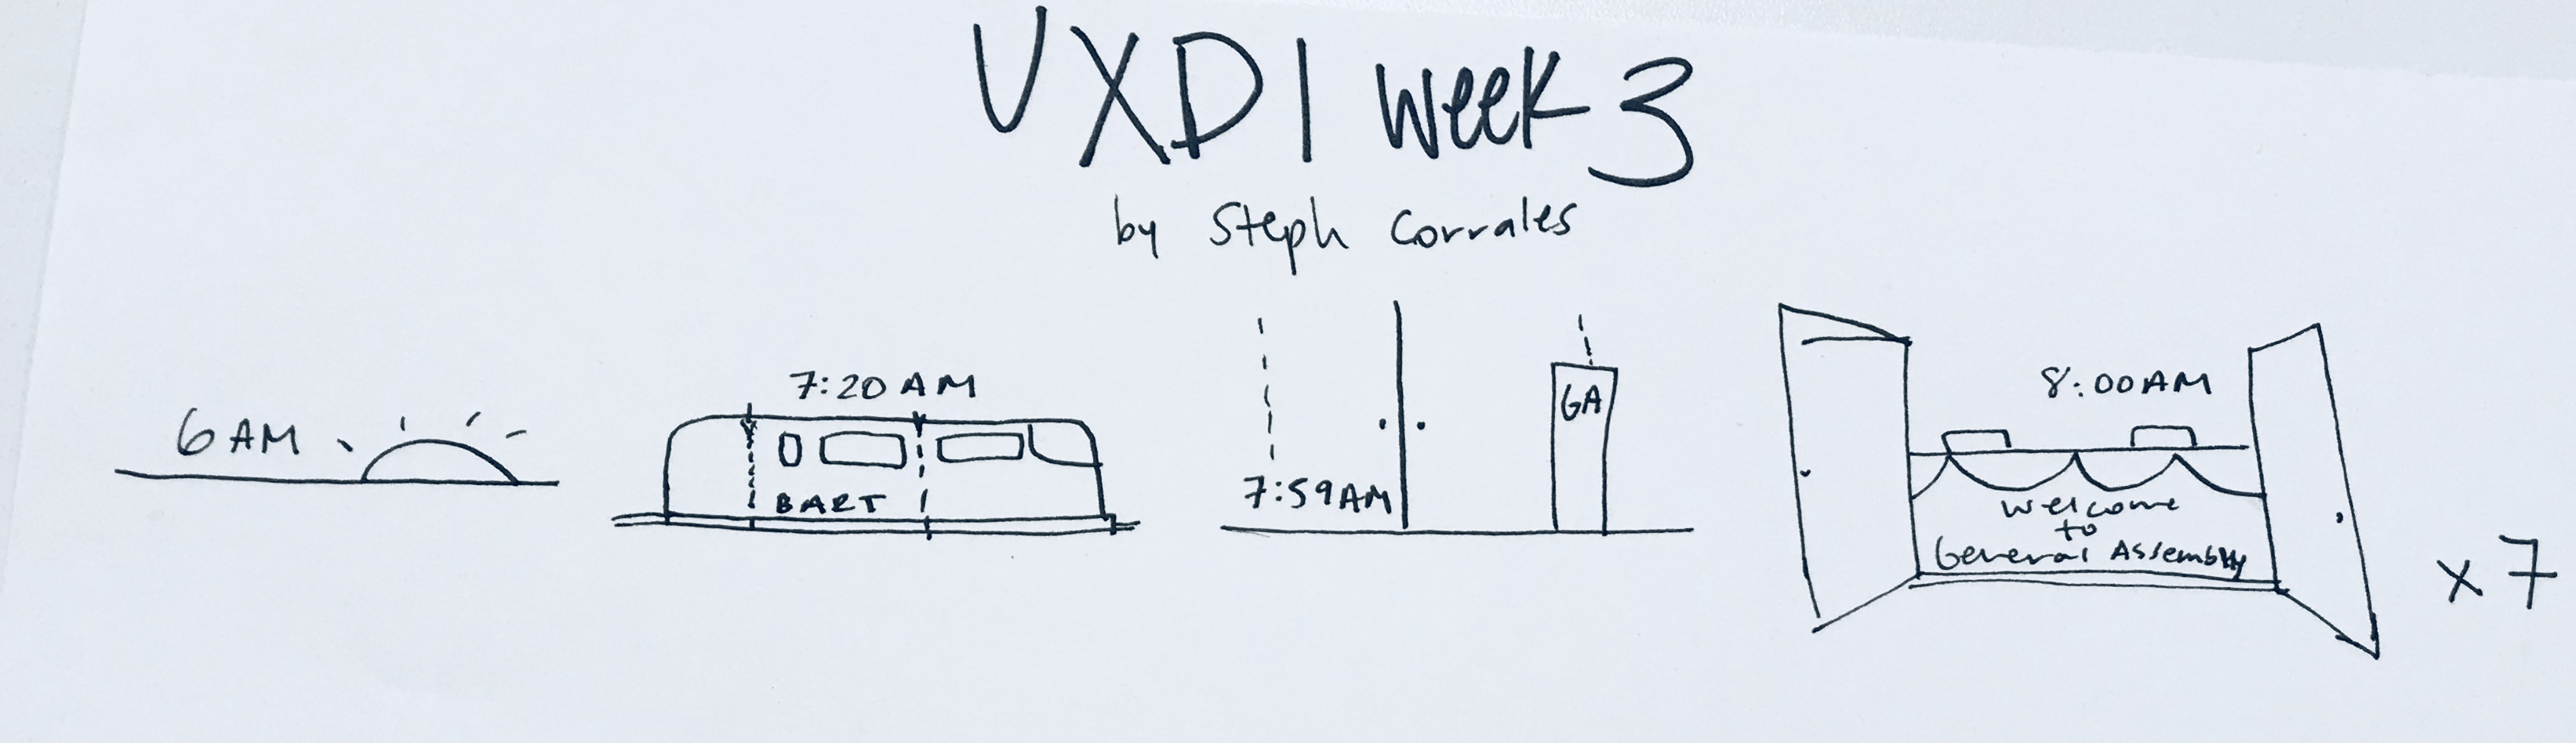 UXDI Week 3
by Steph Corrales
6 AM
7:20 AM
BART
7:59AM
GA
8:00AM
Welcome
to
General Assembly
x7